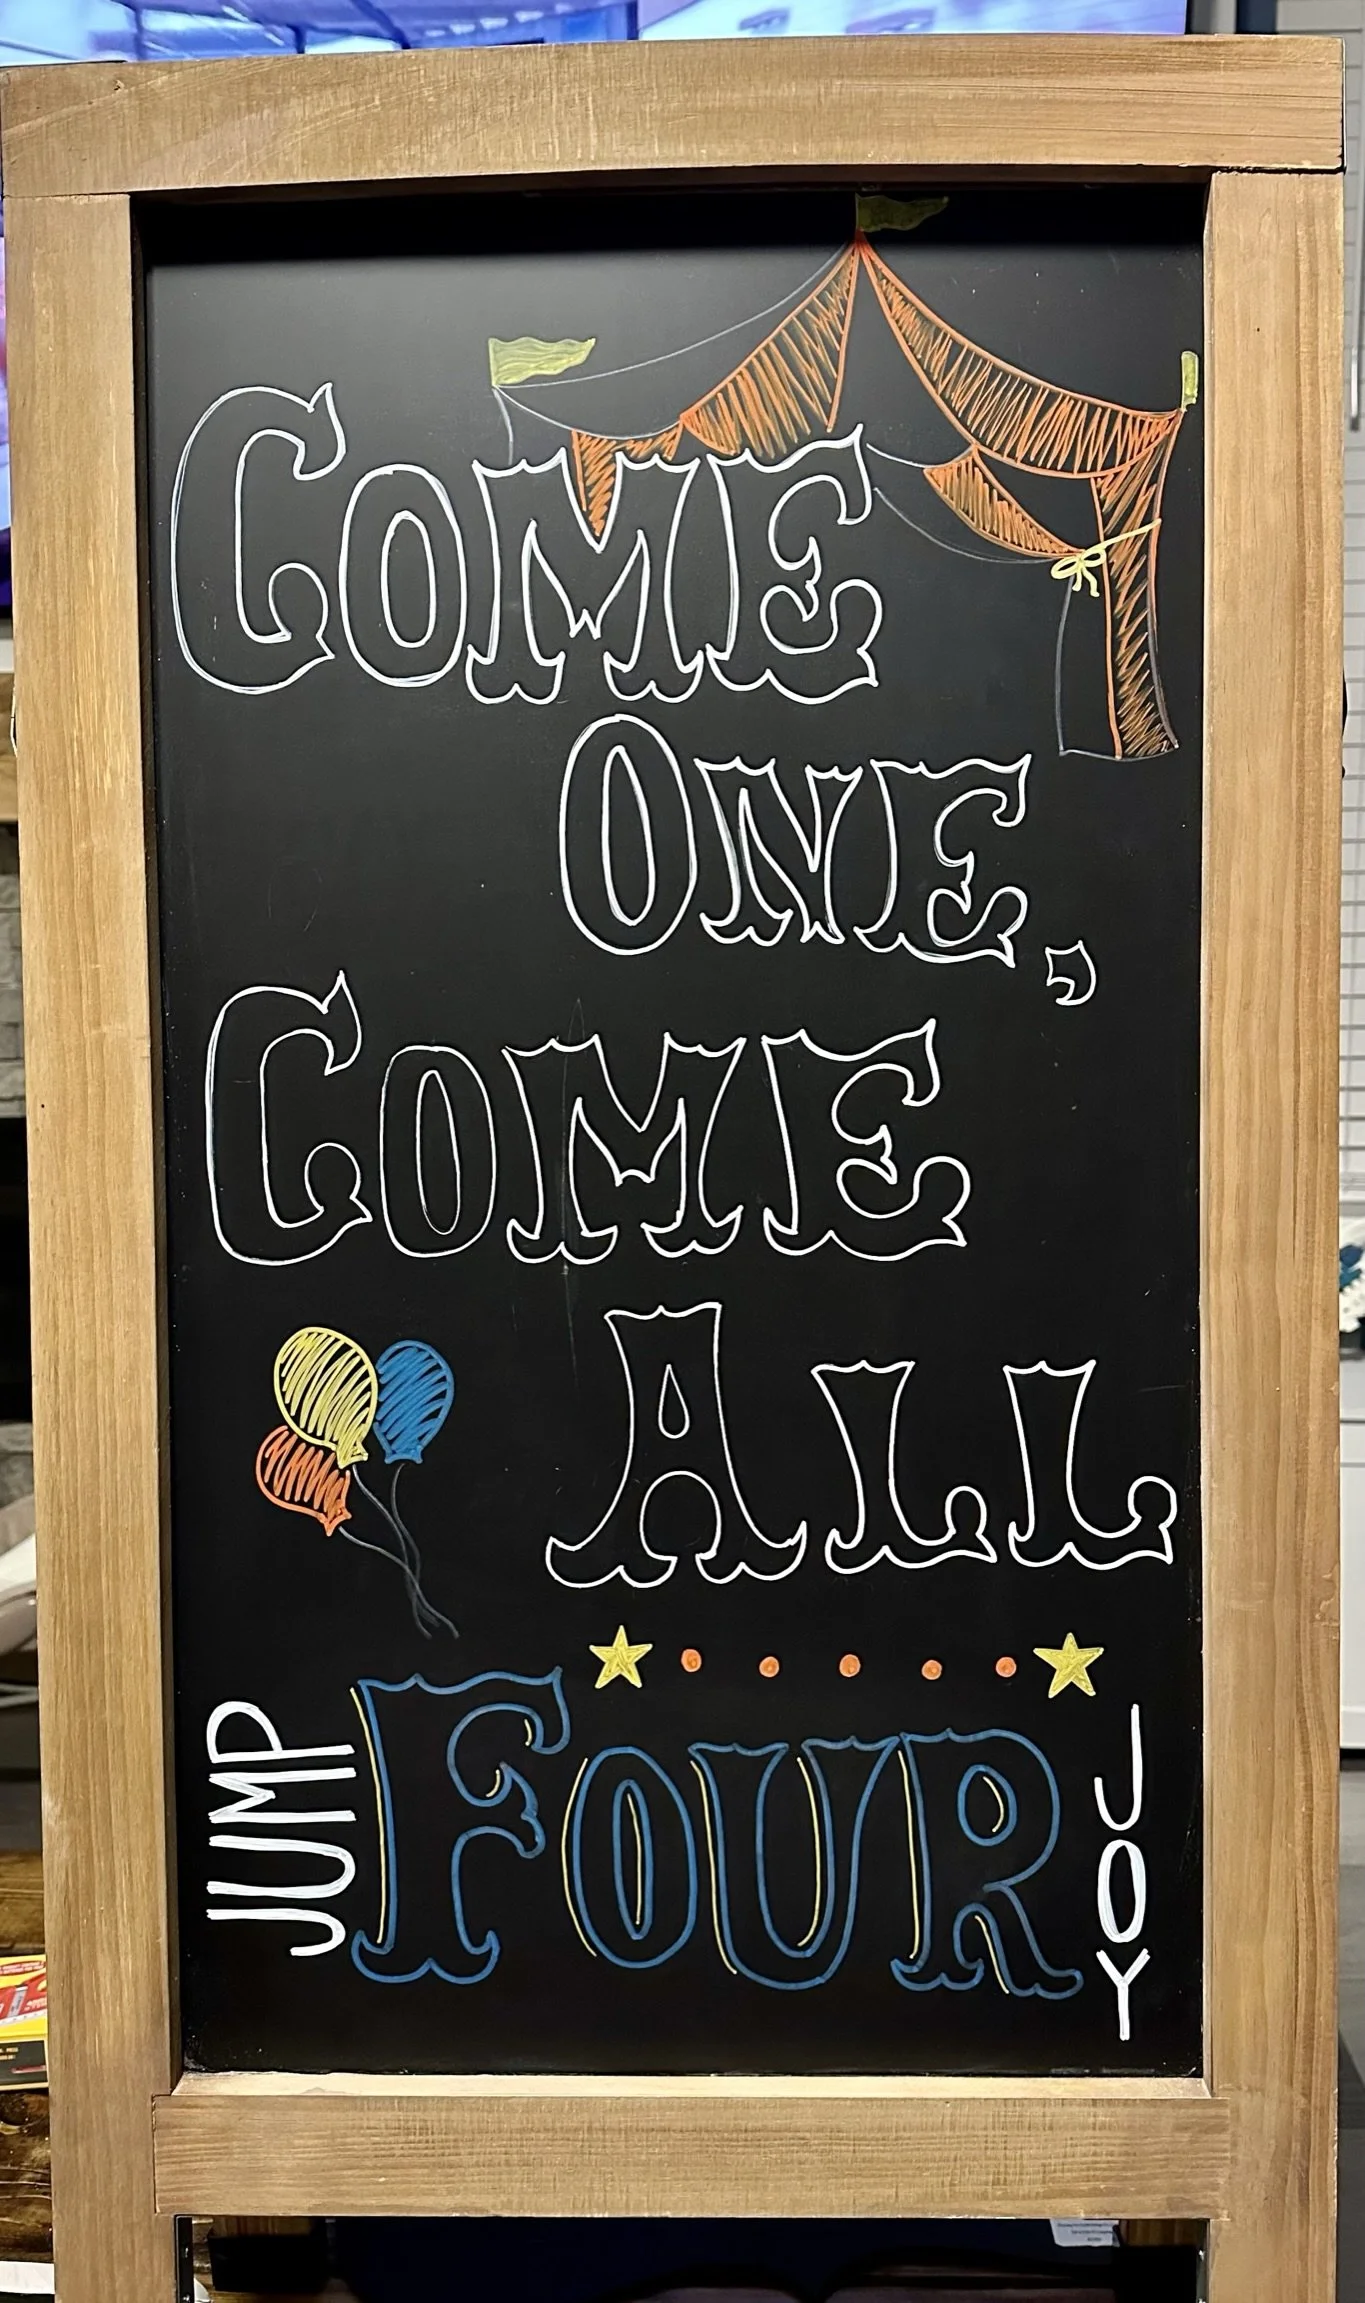 COME
ONE,
COME
ALL
JUMP
FOUR
JOY